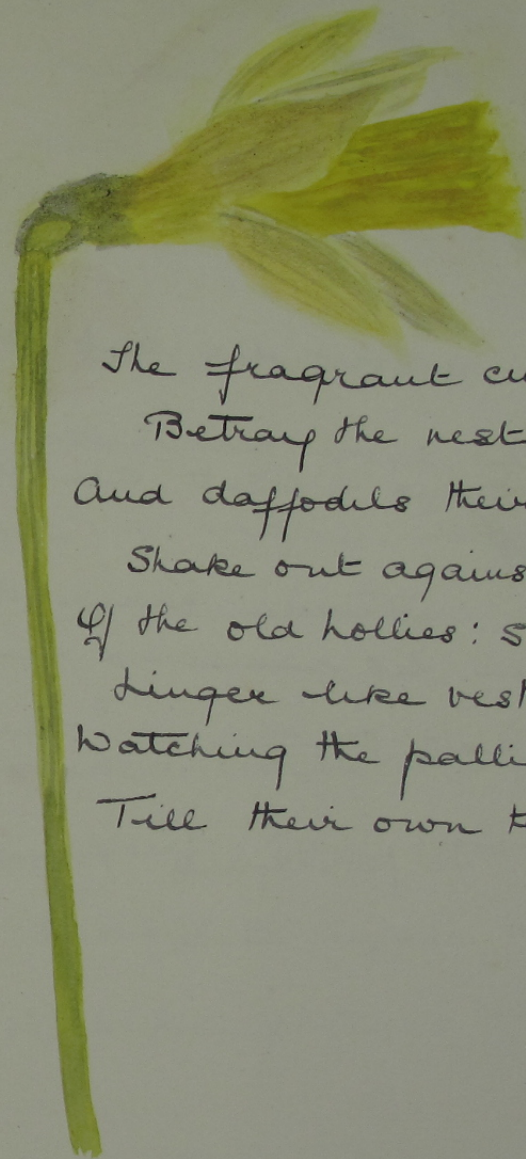 The fragrant cu
Betray the nest
And daffodils their
Shake out agains
Of the old hollies: s
Linger like vest
Watching the palli
Till their own